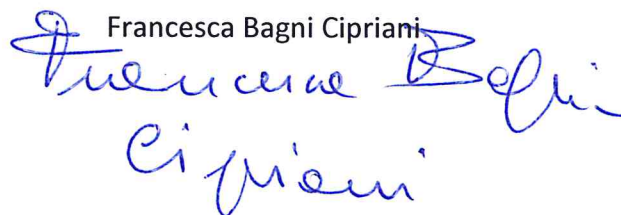 Francesca Bagni Cipriani
Francesca Bagni
Cipriani